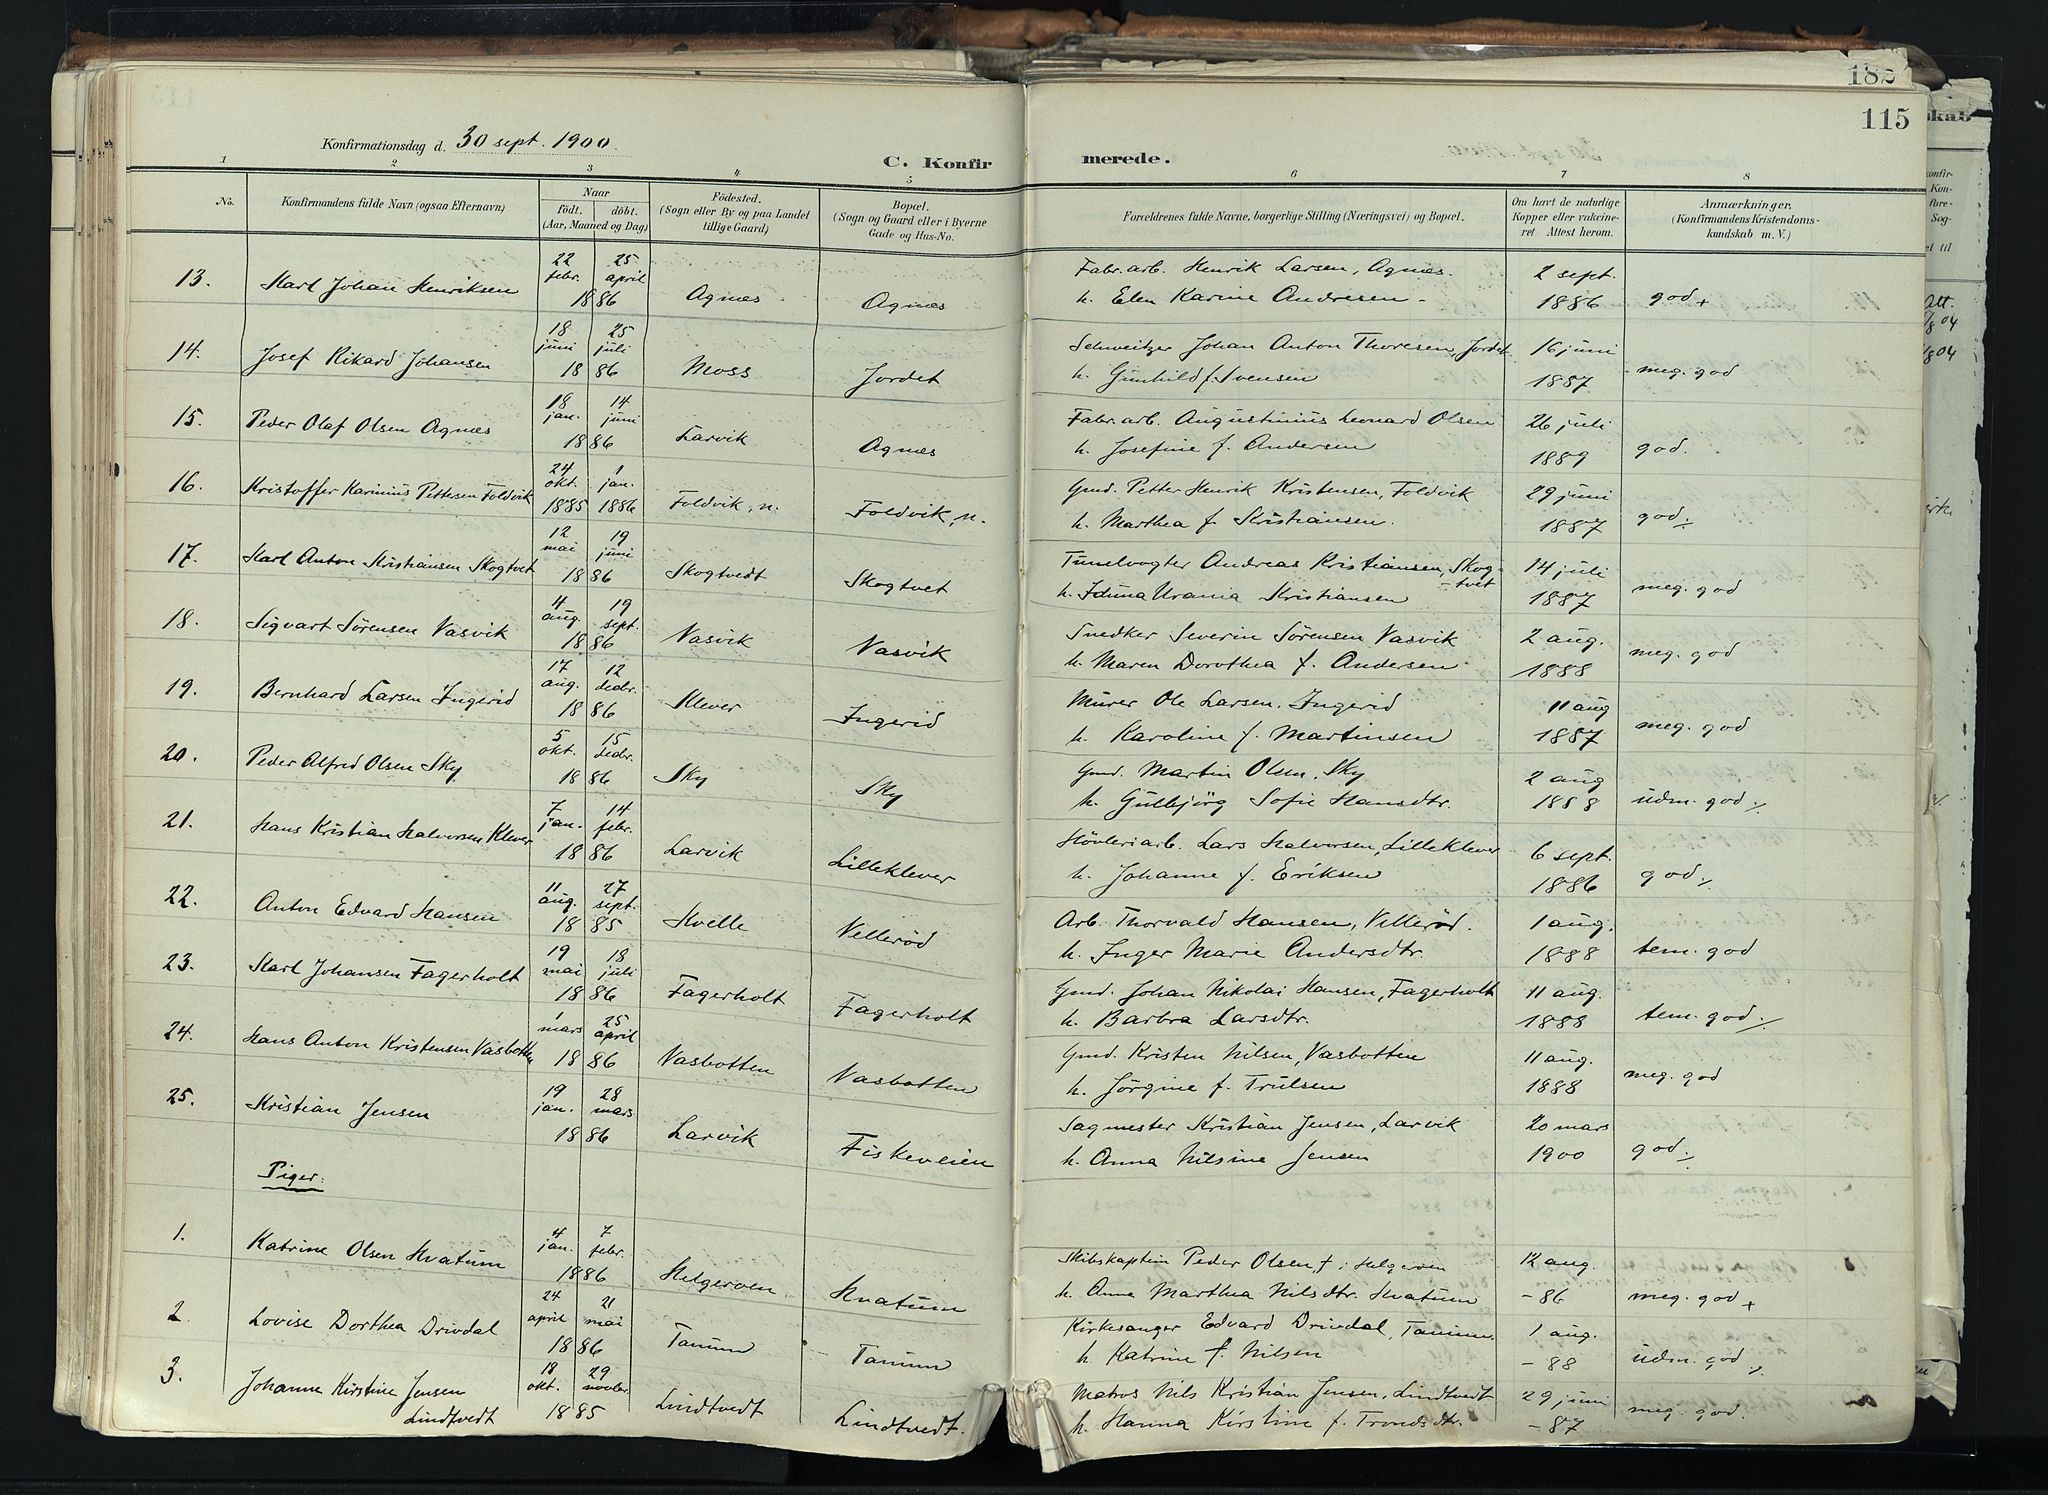 182
115
Konfirmationsdag d. 30 sept. 1900.
C. Konfirmerede.
1 2 3 4 5 6 7 8
No.
Konfirmandens fulde Navn (ogsaa Efternavn)
Naar
födt. döbt.
(Aar, Maaned og Dag)
Födested.
(Sogn eller By og paa Landet
tillige Gaard)
Bopæl.
(Sogn og Gaard eller i Byerne
Gade og Hus-No.
Forældrenes fulde Navne, borgerlige Stilling (Næringsvei) og Bopæl.
Om havt de naturlige
Kopper eller vakcine-
ret. Attest herom.
Anmærkninger.
(Konfirmandens Kristendoms-
kundskab m. V.)
13. Karl Johan Henriksen 22 febr. 25 april 1886 Agnæs Agnæs Fabr. arb. Henrik Larsen, Agnæs. 2 sept.
h. Elen Karine Andresen - 1886 god +
14. Josef Rikard Johansen 18 juni 25 juli 1886 Moss Jordet Schweitzer Johan Anton Thoresen, Jordet 16 juni
h. Gunhild f. Svensen 1887 meg. god
15. Peder Olaf Olsen Agnæs 18 jan. 14 juni 1886 Larvik Agnæs Fabr. arb. Augustinius Leonard Olsen 26 juli
h. Josefine f. Andersen 1889 god.
16. Kristoffer Karinius Pettersen Foldvik 24 okt. 1885 1 jan. 1886 Foldvik, n. Foldvik, n. Gmd. Petter Henrik Kristensen, Foldvik 29 juni
h. Marthea f. Kristiansen. 1887 god
17. Karl Anton Kristiansen Skogtvet 12 mai 19 juni 1886 Skogtvedt Skogtvet Tunelvogter Andreas Kristiansen, Skog-
tvet 14 juli
h. Iduna Urania Kristiansen 1887 meg. god
18. Sigvart Sørensen Vasvik 4 aug. 19 sept. 1886 Vasvik Vasvik Snedker Severin Sørensen Vasvik 2 aug.
h. Maren Dorothea f. Andersen 1888 meg. god
19. Bernhard Larsen Ingerid 17 aug. 12 decbr. 1886 Klever Ingerid Murer Ole Larsen, Ingerid 11 aug
h. Karoline f. Martinsen 1887 meg. god
20. Peder Alfred Olsen Sky 5 okt. 15 decbr. 1886 Sky Sky Gmd. Martin Olsen, Sky 2 aug
h. Gulbjörg Sofie Hansdtr. 1888 udm. god
21. Hans Kristian Halvorsen Klever 7 jan. 14 febr. 1886 Larvik Lilleklever Høvleriarb. Lars Halvorsen, Lilleklever 6 sept.
h. Johanne f. Eriksen 1886 god
22. Anton Edvard Hansen 11 aug. 27 sept. 1885 Kvelle Vellerød Arb. Thorvald Hansen, Vellerød. 1 aug.
h. Inger Marie Andersdtr. 1888 tem. god
23. Karl Johansen Fagerholt 19 mai 18 juli 1886 Fagerholt Fagerholt Gmd. Johan Nikolai Hansen, Fagerholt 11 aug.
h. Barbra Larsdtr. 1888 tem. god
24. Hans Anton Kristensen Vasbotten 1 mars 25 april 1886 Vasbotten Vasbotten Gmd. Kristen Nilsen, Vasbotten 11 aug.
h. Jørgine f. Trulsen 1888 meg. god
25. Kristian Jensen 19 jan. 28 mars 1886 Larvik Fiskeveien Sagmester Kristian Jensen, Larvik 20 mars
h. Anna Nilsine Jensen 1900 god
Piger:
1. Katrine Olsen Kvatum 4 jan. 7 febr. 1886 Helgeroen Kvatum Skibskaptein Peder Olsen, f. i Helgeroen 12 aug.
h. Anna Marthea Nilsdtr. Kvatum - 86 meg. god +
2. Lovise Dorthea Drivdal 24 april 21 mai 1886 Tanum Tanum Kirkesanger Edvard Drivdal, Tanum. 1 aug.
h. Katrine f. Nilsen - 88 udm. god
3. Johanne Kirstine Jensen
Lindtvedt 18 okt. 29 novbr. 1885 Lindtvedt Lindtvedt. Matros Nils Kristian Jensen, Lindtvedt 29 juni
h. Hanna Kirstine f. Trondsdtr. - 87 meg. god.